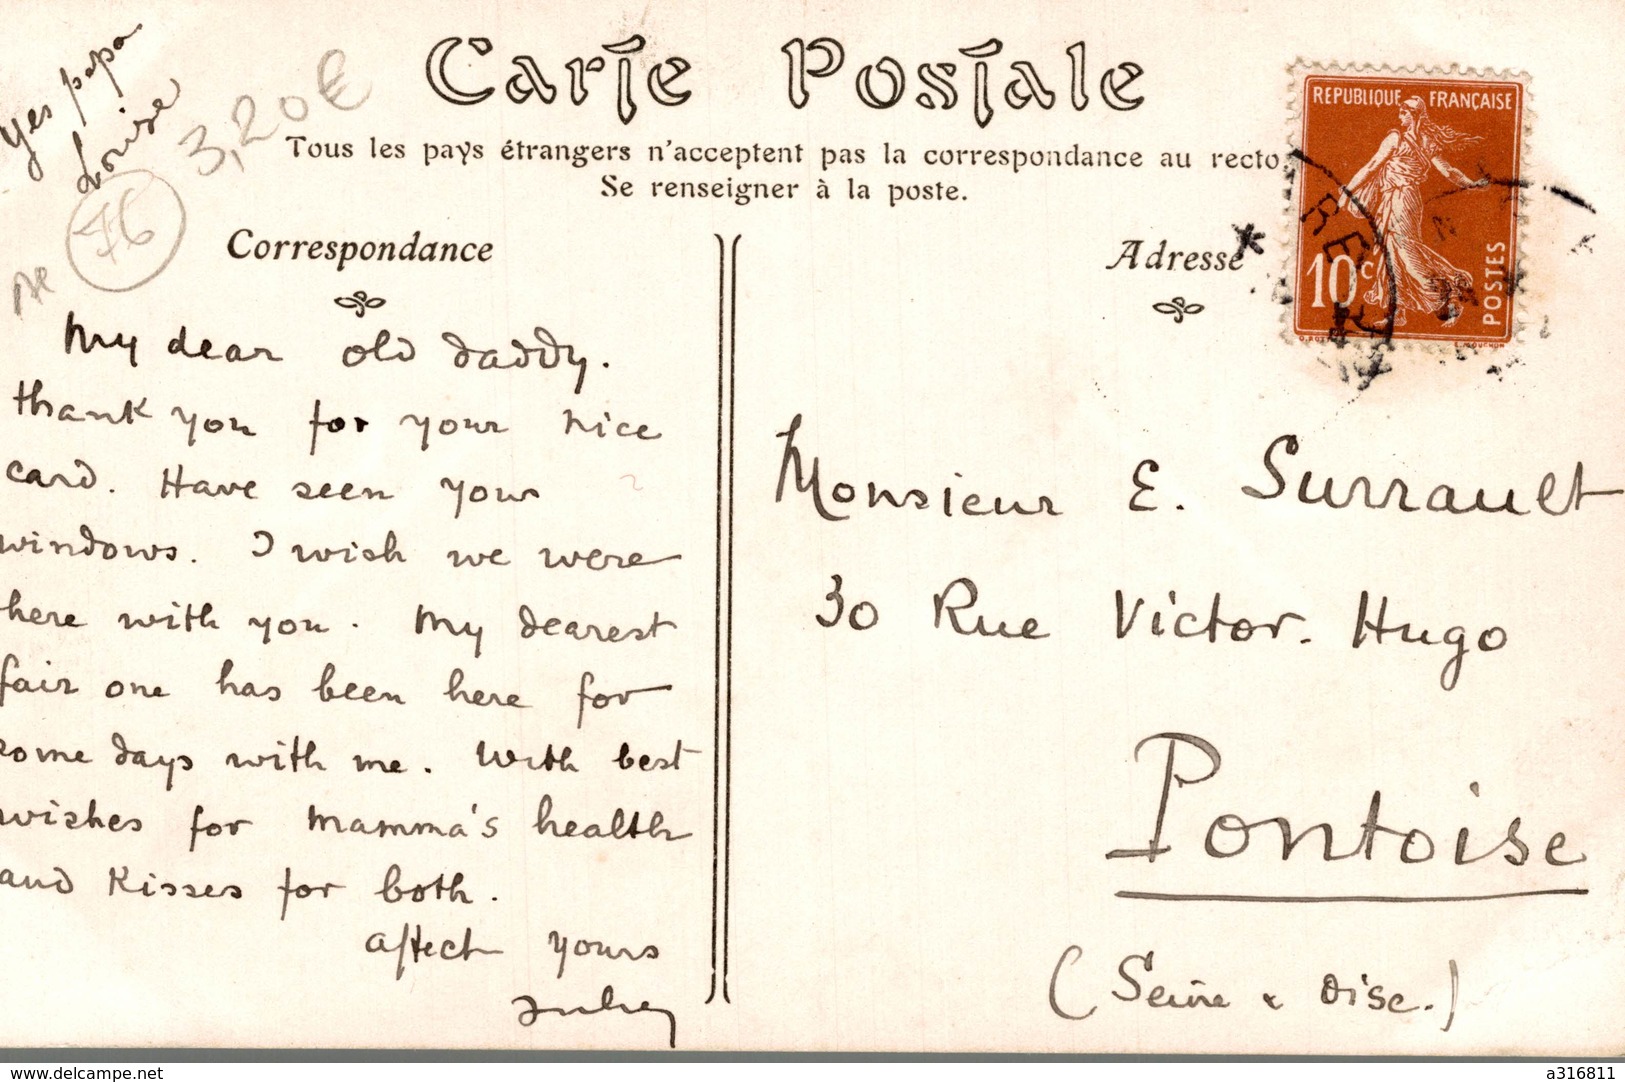 Yes papa
Louise
3,20€
76
Carte Postale
Tous les pays étrangers n'acceptent pas la correspondance au recto.
Se renseigner à la poste.
Correspondance
Adresse
REPUBLIQUE FRANÇAISE
10c
POSTES
My dear old daddy.
thank you for your nice
card. Have seen your
windows. I wish we were
here with you. My dearest
fair one has been here for
some days with me. With best
wishes for Mamma's health
and Kisses for both.
affect yours
Monsieur E. Surrault
30 Rue Victor. Hugo
Pontoise
(Seine & Oise.)
www.delcampe.net
a316811